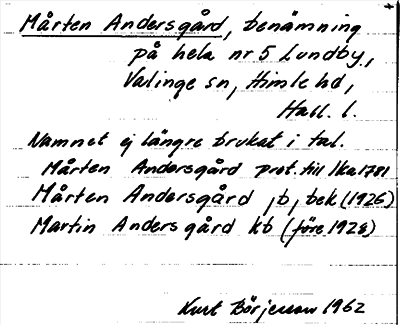 Mårten Andersgård, benämning
på hela nr 5 Lundby,
Valinge sn, Himle hd,
Hall. l.
Namnet ej längre brukat i tal.
Mårten Andersgård prot. till lka 1781
Mårten Andersgård, b, bek (1926)
Martin Andersgård kb (före 1928)
Kurt Börjesson 1962